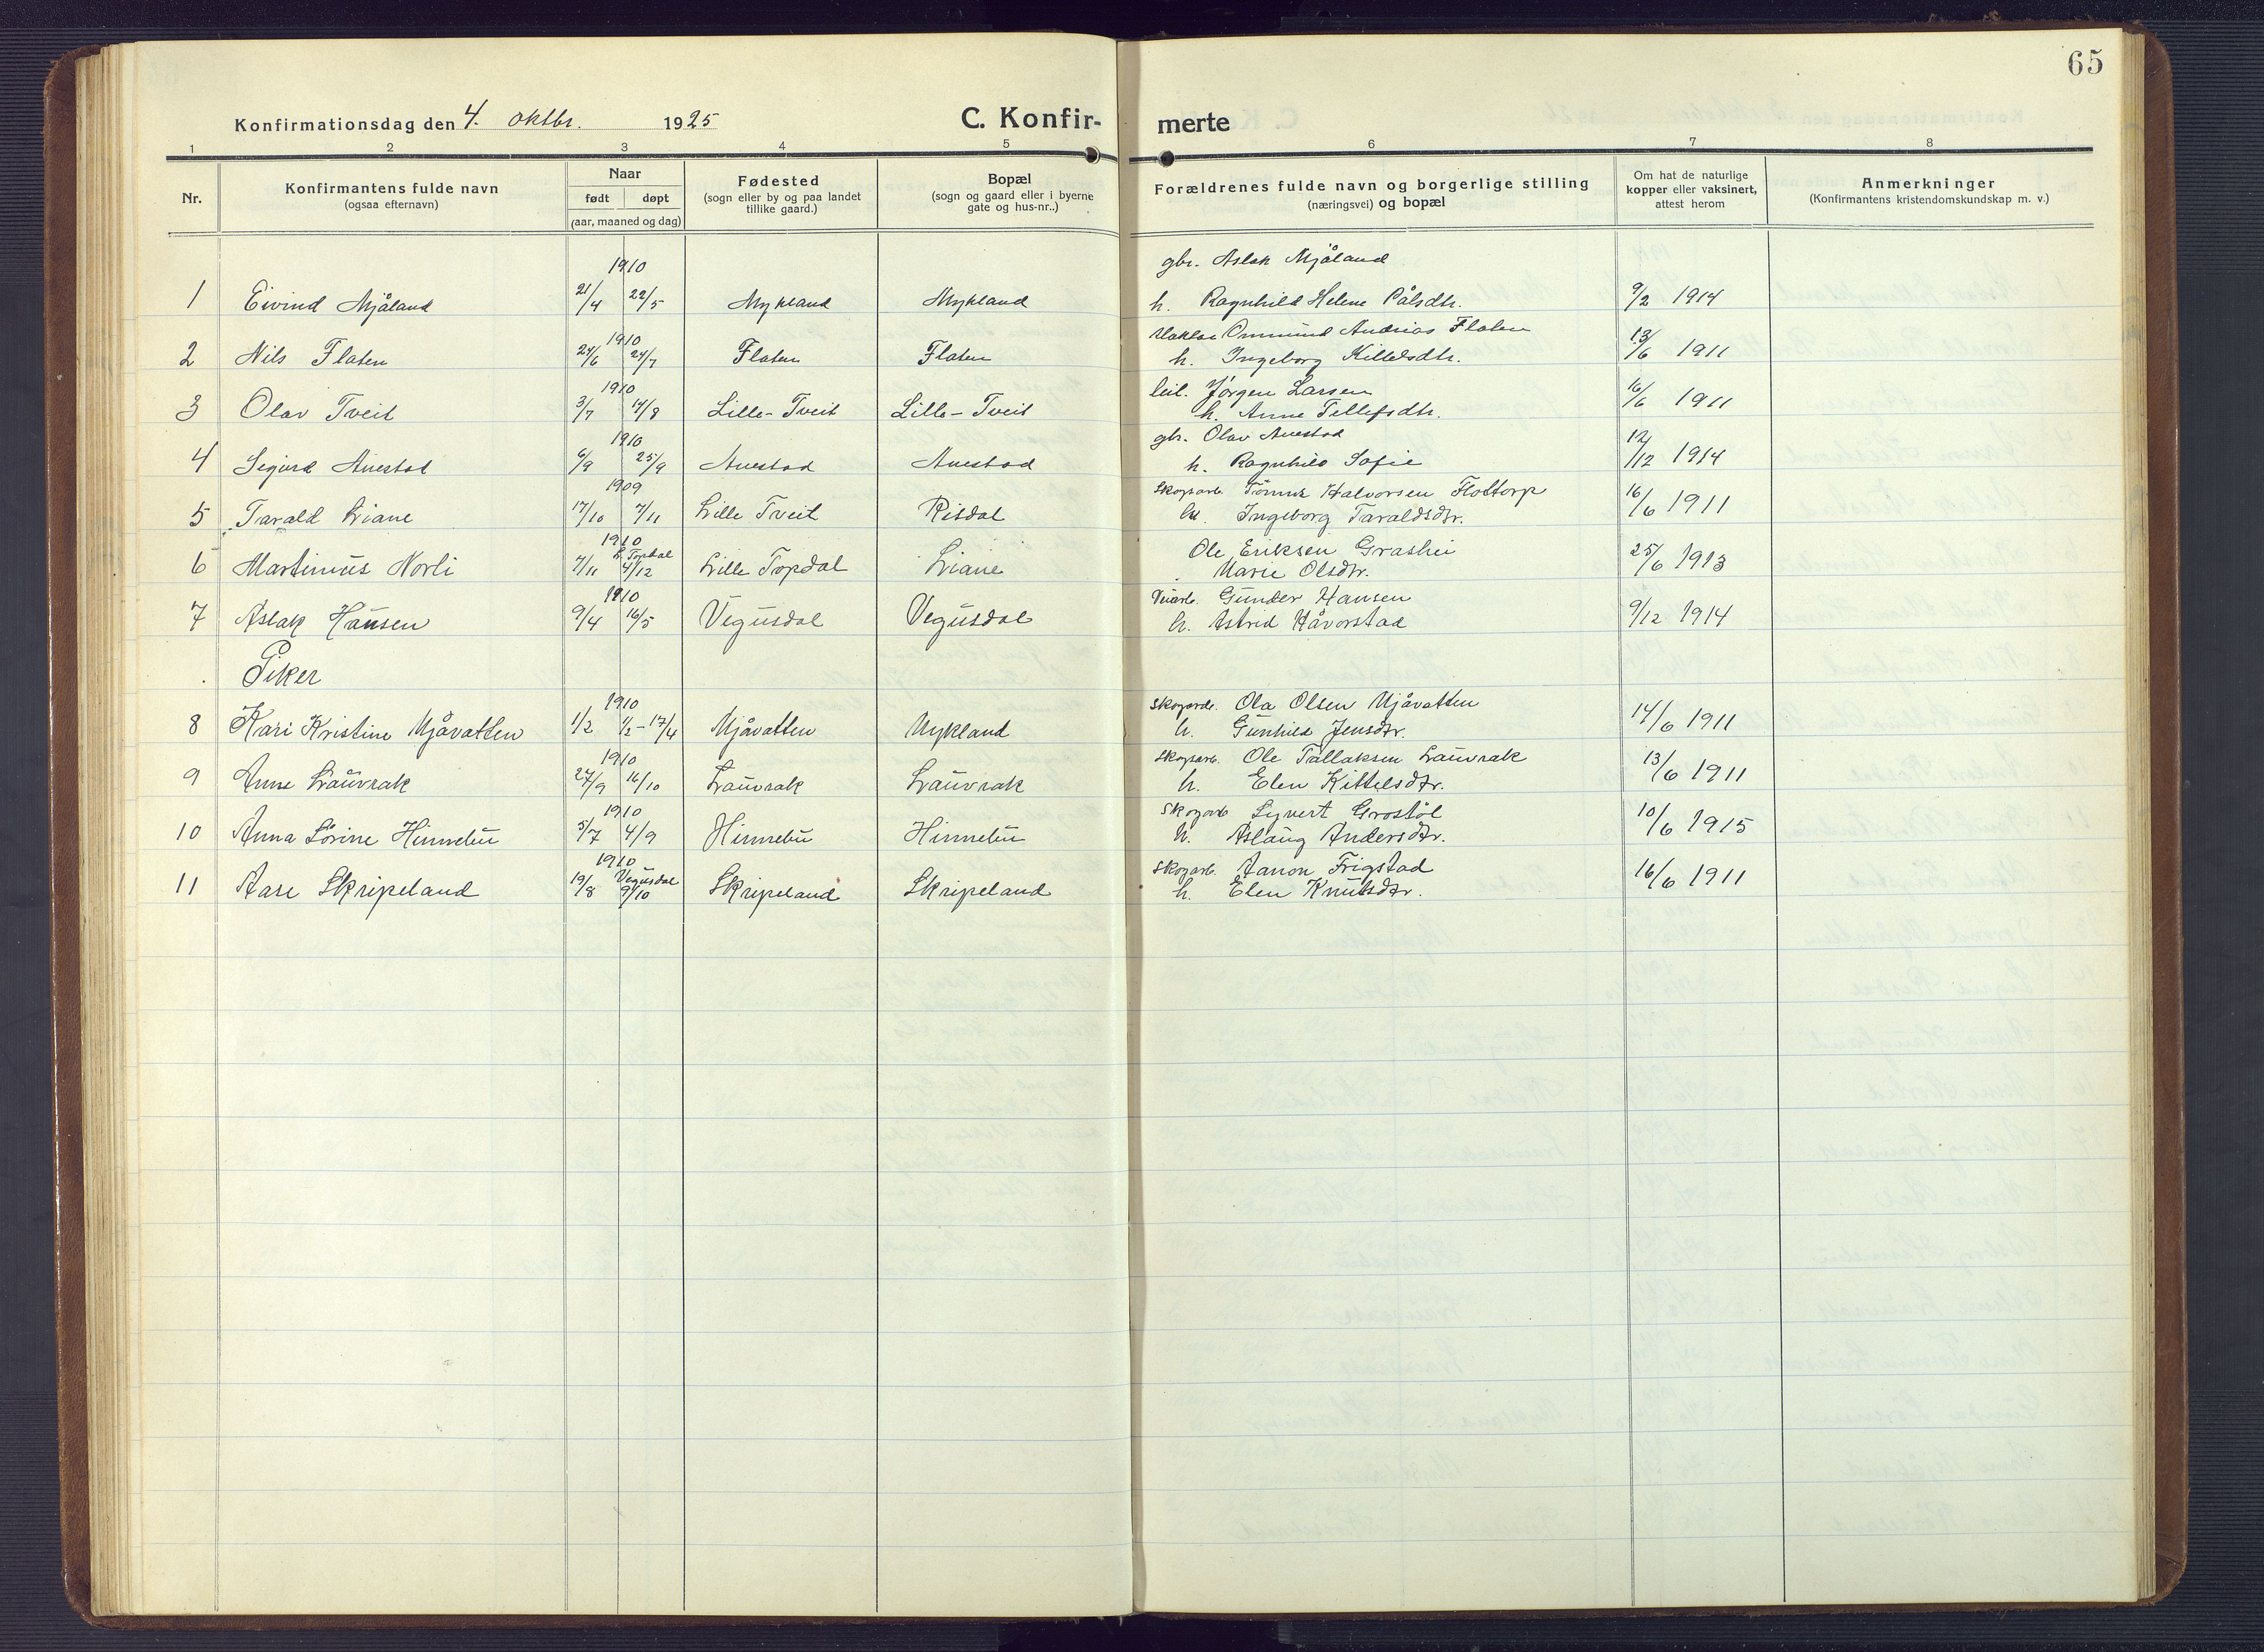 65
Konfirmationsdag den 4. oktbr. 1925 C. Konfir- merte
1 2 3 4 5 6 7 8
Nr. Konfirmantens fulde navn (ogsaa efternavn) Naar født døpt (aar, maaned og dag) Fødested (sogn eller by og paa landet tillike gaard.) Bopæl (sogn og gaard eller i byerne gate og hus-nr..) Forældrenes fulde navn og borgerlige stilling (næringsvei) og bopæl Om hat de naturlige kopper eller vaksinert, attest herom Anmerkninger (Konfirmantens kristendomskundskap m. v.)
1910 gbr. Aslak Mjåland
1 Eivind Mjåland 21/4 22/5 Mykland Mykland h. Ragnhild Helene Pålsdtr. 9/2 1914
1910 Ommund Andrias Flaten
2 Nils Flaten 24/6 24/7 Flaten Flaten h. Ingeborg Kittelsdtr. 13/6 1911
1910 leil. Jørgen Larsen
3 Olav Tveit 3/7 14/8 Lille-Tveit Lille-Tveit h. Anne Tellefsdtr. 16/6 1911
1910 gbr. Olav Auestad
4 Sigurd Auestad 6/9 25/9 Auestad Auestad h. Ragnhild Sofie 12/12 1914
1909 Skogsarb. Tønnes Halvorsen Flottorp
5 Tarald Liane 17/10 7/11 Lille Tveit Risdal h. Ingeborg Taraldsdtr. 16/6 1911
1910 L. Topdal Ole Eriksen Grashei
6 Martinius Norli 7/11 4/12 Lille Topdal Liane Marie Olsdtr. 25/6 1913
1910 Veiarb. Gunder Hansen
7 Aslak Hansen 9/4 16/5 Vegusdal Vegusdal h. Astrid Håvorstad 9/12 1914
Piker
1910 Skogarb. Ola Olsen Mjåvatten
8 Kari Kristine Mjåvatten 1/2 1/2-17/4 Mjåvatten Mykland h. Gunhild Jensdtr. 14/6 1911
1910 Skogsarb. Ole Tallaksen Lauvrak
9 Anne Lauvrak 27/9 16/10 Lauvrak Lauvrak h. Elen Kittelsdtr. 13/6 1911
1910 Skogarb Syvert Grostøl
10 Anna Sørine Hinnebu 5/7 4/9 Hinnebu Hinnebu h. Aslaug Andersdtr. 10/6 1915
1910 Vegusdal Skogarb. Aanon Frigstad
11 Aase Skripeland 19/8 9/10 Skripeland Skripeland h. Elen Knutsdtr. 16/6 1911